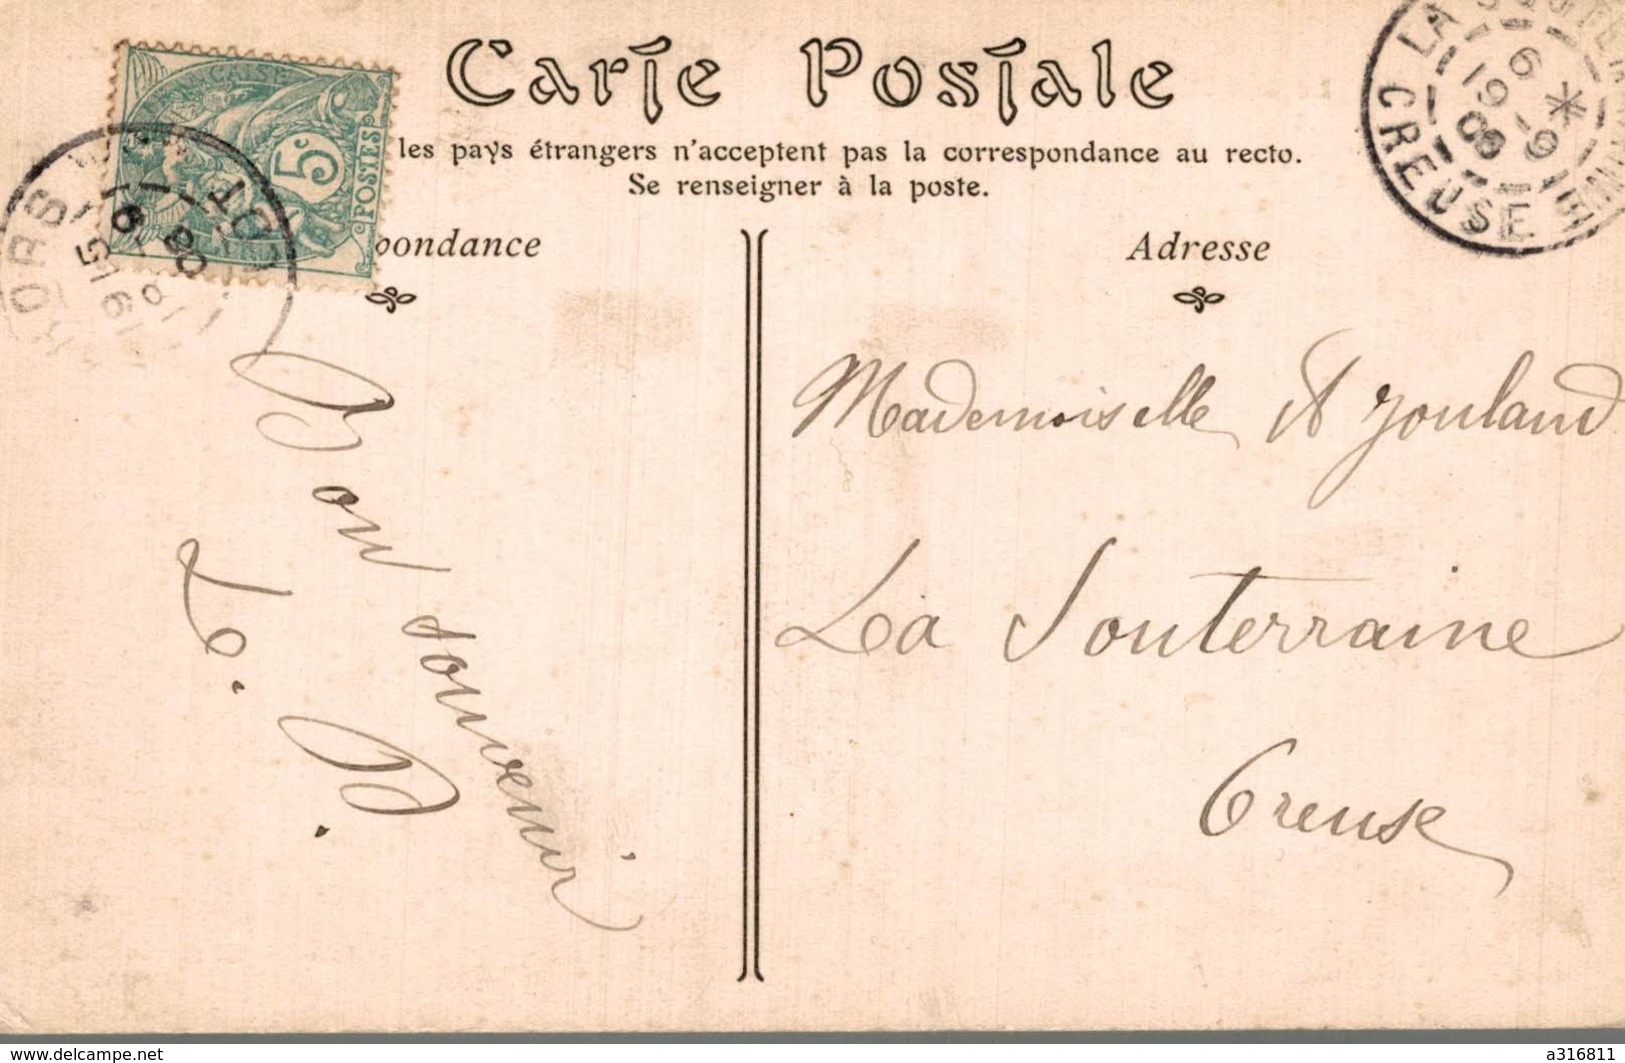 Carte Postale
les pays étrangers n'acceptent pas la correspondance au recto.
Se renseigner à la poste.
pondance
Adresse
5c
POSTES
LA
CREUSE
Bon souvenir
Mademoiselle
La Souterraine
Creuse
www.delcampe.net
a316811